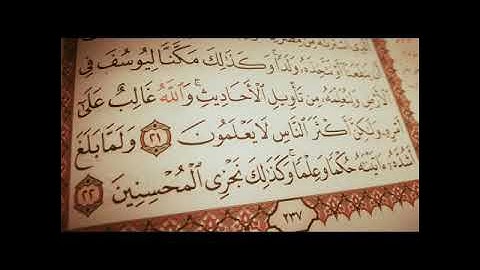 أَن يَنفَعَنَآ أَوْ نَتَّخِذَهُۥ وَلَدًا ۚ وَكَذَٰلِكَ مَكَّنَّا لِيُوسُفَ فِى
ٱلْأَرْضِ وَلِنُعَلِّمَهُۥ مِن تَأْوِيلِ ٱلْأَحَادِيثِ ۚ وَٱللَّهُ غَالِبٌ عَلَىٰٓ
أَمْرِهِۦ وَلَٰكِنَّ أَكْثَرَ ٱلنَّاسِ لَا يَعْلَمُونَ ٢١ وَلَمَّا بَلَغَ
أَشُدَّهُۥٓ ءَاتَيْنَٰهُ حُكْمًا وَعِلْمًا ۚ وَكَذَٰلِكَ نَجْزِى ٱلْمُحْسِنِينَ ٢٢
٢٣٧